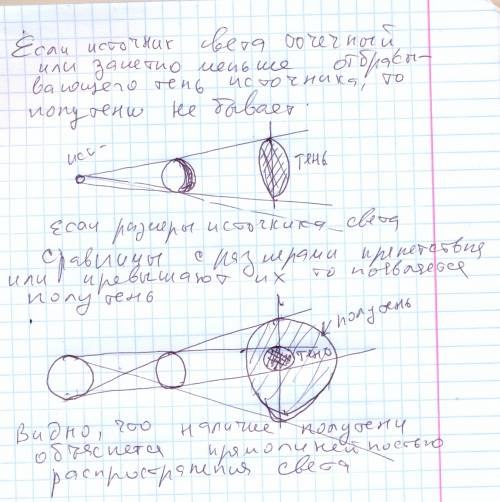 Если источник света точечный
или заметно меньше отбрасы-
вающего тень источника, то
полутени не бывает.
ист-
тень
Если размеры источника света
сравнимы с размерами препятствия
или превышают их то появляется
полутень
полутень
тень
Видно, что наличие полутени
объясняется прямолинейностью
распространения света